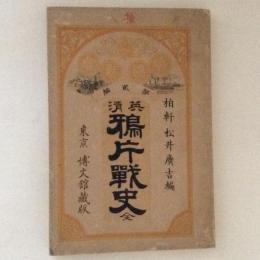 編貳第
英清
鴉片戰史 全
柏軒 松井廣吉編
東京 博文館藏版